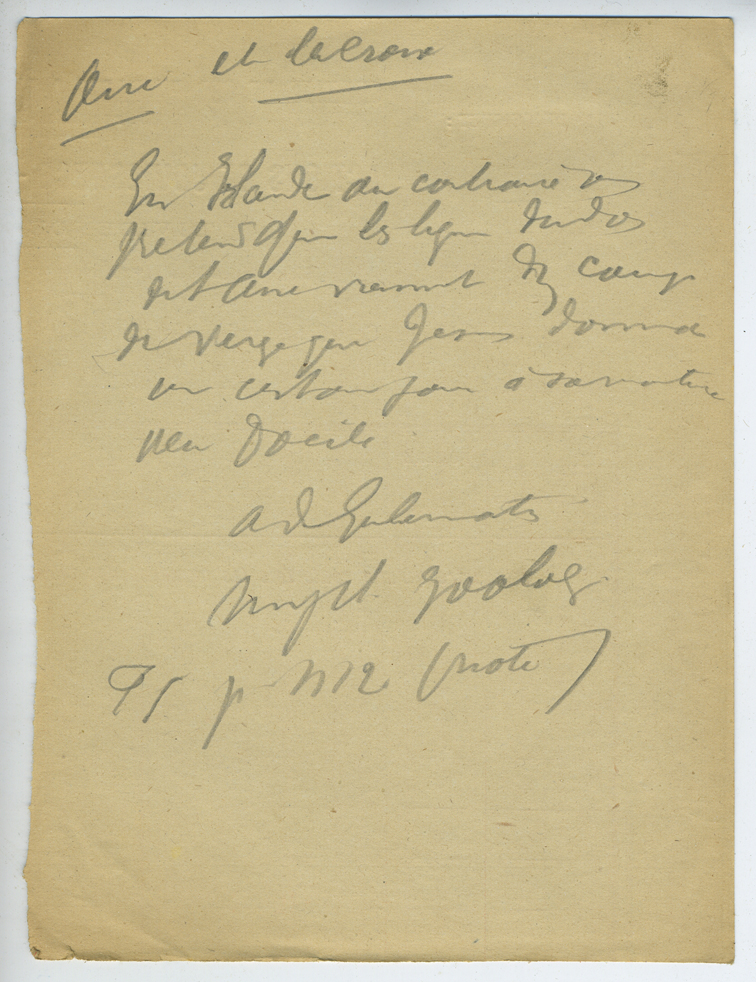 Ane et la croix
En Irlande au contraire on
prétend que les lignes du dos
de l'âne viennent des coups
de verge que Jésus donna
un certain jour à sa monture
peu docile
A de Gubernatis
Mythol zoolog
T I p (note)